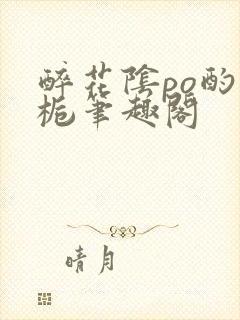 醉花陰po酌
梔筆趣閣
晴月